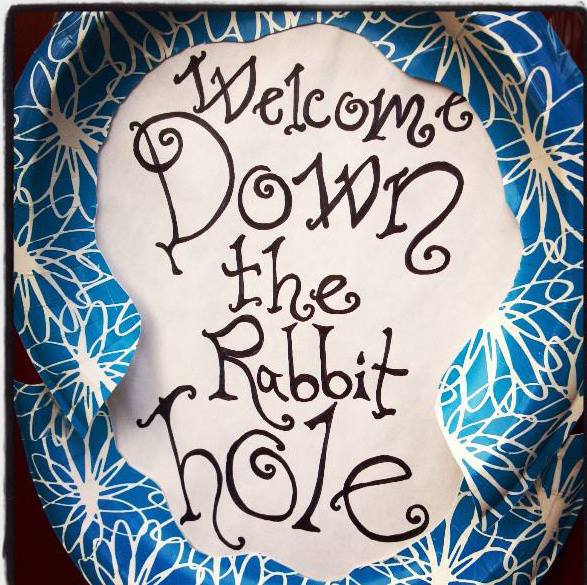 Welcome
Down
the
Rabbit
hole